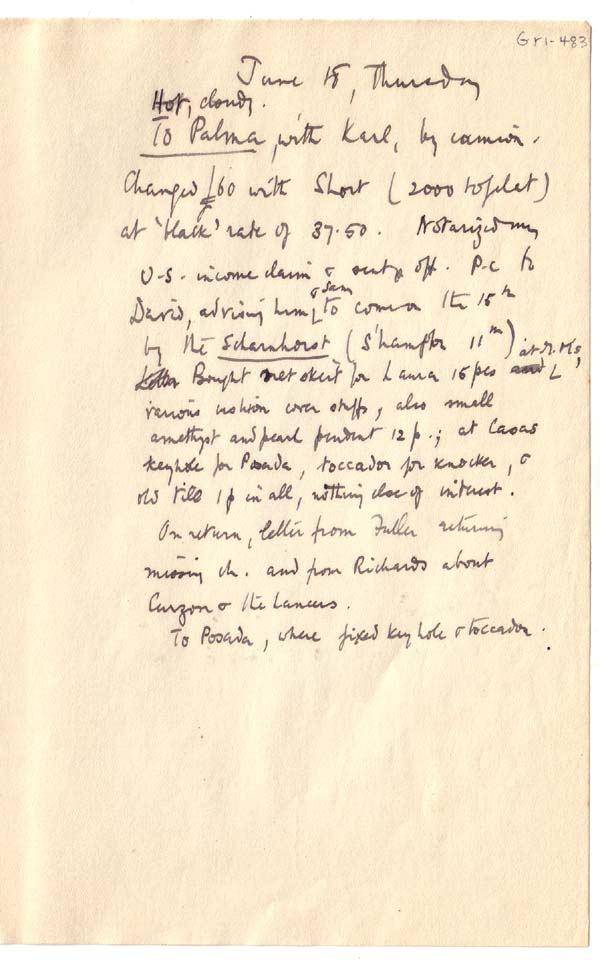 Gr1-483
June 18, Thursday
Hot, cloudy.
To Palma, with Karl, by camion.
Changed £60 with Short (2000 to flat)
at 'black' rate of 37.50. Notarized my
U-S- income claim & sent off. P-c to
David, advising him & Sam to come on the 15th
by the Scharnhorst (S'hampton 11th) at M. M's,
Letter Bought net skirt for Laura 16 pes and L
various cushion cover stuffs, also small
amethyst and pearl pendent 12 p.; at Casas
keyhole for Posada, toccador for knocker, &
old till 1 p in all, nothing else of interest.
On return, letter from Fuller returning
missing ch. and from Richards about
Curzon & the Lancers.
To Posada, where fixed keyhole & toccador.